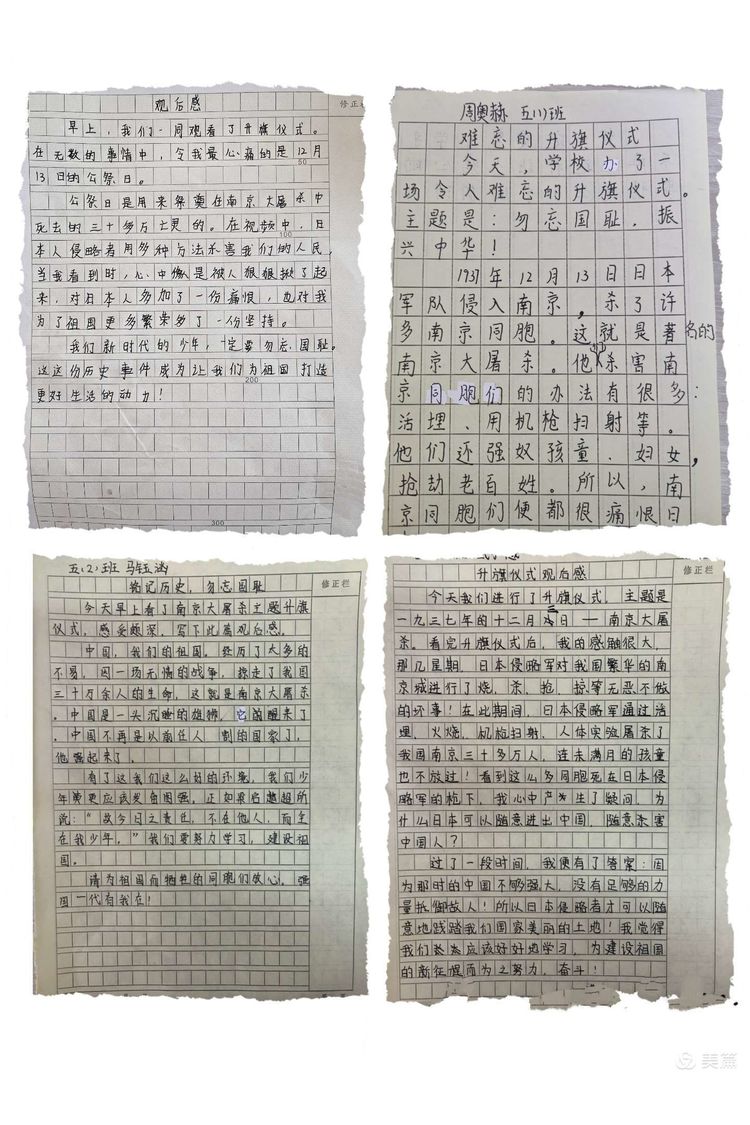 观后感
修正栏
早上，我们一同观看了升旗仪式。
在无数的事情中，令我最心痛的是12月
50
13日的公祭日。
公祭日是用来祭奠在南京大屠杀中
死去的三十多万亡灵的。在视频中，日
100
本人侵略者用多种方法杀害我们的人民，
当我看到时，心中像是被人狠狠揪了起
来，对日本人多加了一份痛恨，也对我
为了祖国更多繁荣多了一份坚持。
我们新时代的少年，一定要勿忘国耻。
这份历史事件成为让我们为祖国打造
200
更好生活的动力！
300
周奥赫 五(1)班
难忘的升旗仪式
今天，学校办了一
场令人难忘的升旗仪式。
主题是：勿忘国耻，振
兴中华！
1937年12月13日日本
军队侵入南京，杀了许
多南京同胞。这就是著名的
南京大屠杀。他们杀害南
京同胞们的办法有很多：
活埋、用机枪扫射等。
他们还强奴孩童、妇女，
抢劫老百姓。所以，南
京同胞们便都很痛恨日
五(2)班 马钰涵
铭记历史，勿忘国耻
修正栏
今天早上看了南京大屠杀主题升旗
仪式，感受颇深，写下此篇观后感。
中国，我们的祖国，经历了太多的
不易，因一场无情的战争，掠走了我国
三十万余人的生命，这就是南京大屠杀
。中国是一头沉睡的雄狮，它苏醒来了
，中国不再是以前任人 割的国家了，
他强起来了。
有了这我们这么好的环境，我们少
年更应该发奋图强，正如梁启超所
说：“故今日之责任，不在他人，而全
在我少年。”我们要努力学习，建设祖
国。
请为祖国而牺牲的同胞们放心，强
国一代有我在！
升旗仪式观后感
修正栏
今天我们进行了升旗仪式，主题是
一九三七年的十二月 日——南京大屠
杀。看完升旗仪式后，我的感触很大，
那几星期，日本侵略军对我国繁华的南
京城进行了烧、杀、抢、掠等无恶不做
的坏事！在此期间，日本侵略军通过活
埋、火烧、机枪扫射、人体实验屠杀了
我国南京三十多万人，连未满月的孩童
也不放过！看到这么多同胞死在日本侵
略军的枪下，我心中产生了疑问，为
什么日本可以随意进出中国，随意杀害
中国人？
过了一段时间，我便有了答案：因
为那时的中国不够强大，没有足够的力
量抵御敌人！所以日本侵略者才可以随
意地践踏我们国家美丽的土地！我觉得
我们应该好好地学习，为建设祖国
的新征程而为之努力、奋斗！
美篇